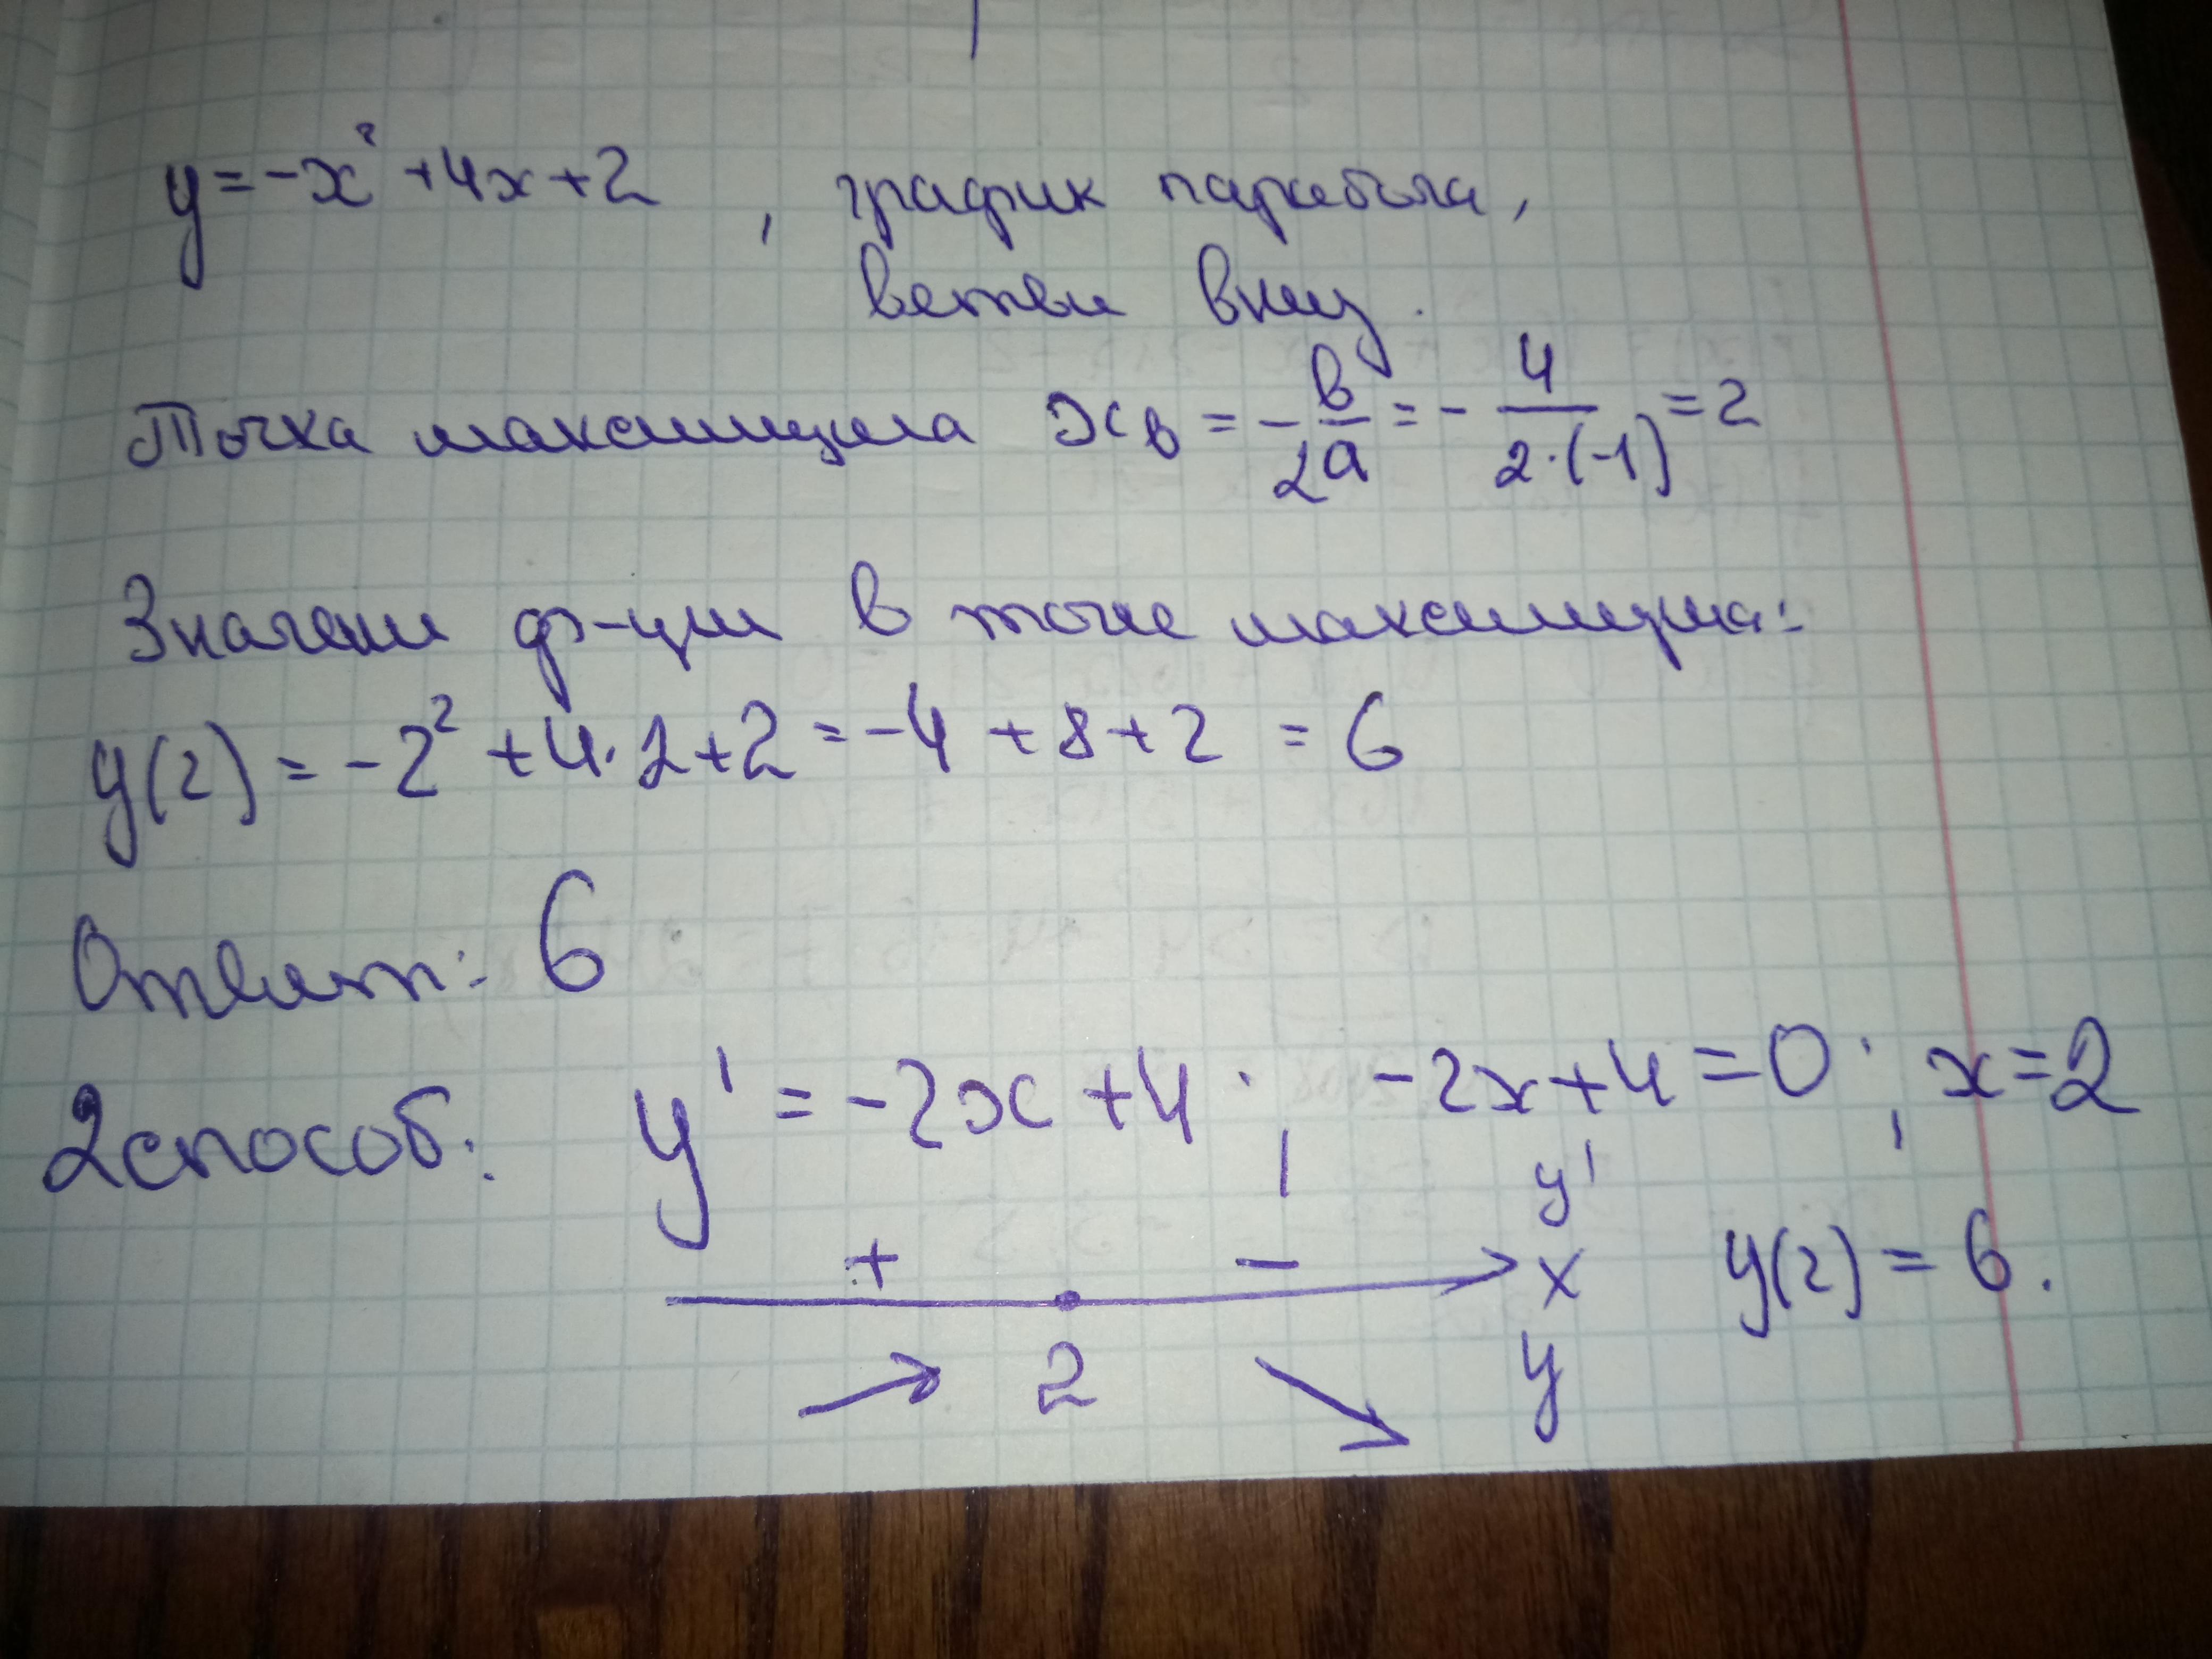 y = -x² + 4x + 2 , график парабола,
ветви вниз.
Точка максимума xв = -в/2a = - 4/2·(-1) = 2
Значении ф-ции в точке максимума:
y(2) = -2² + 4·2 + 2 = -4 + 8 + 2 = 6
Ответ: 6
2 способ: y' = -2x + 4 ; -2x + 4 = 0 ; x = 2
+ - y'
x y(2) = 6.
2 y